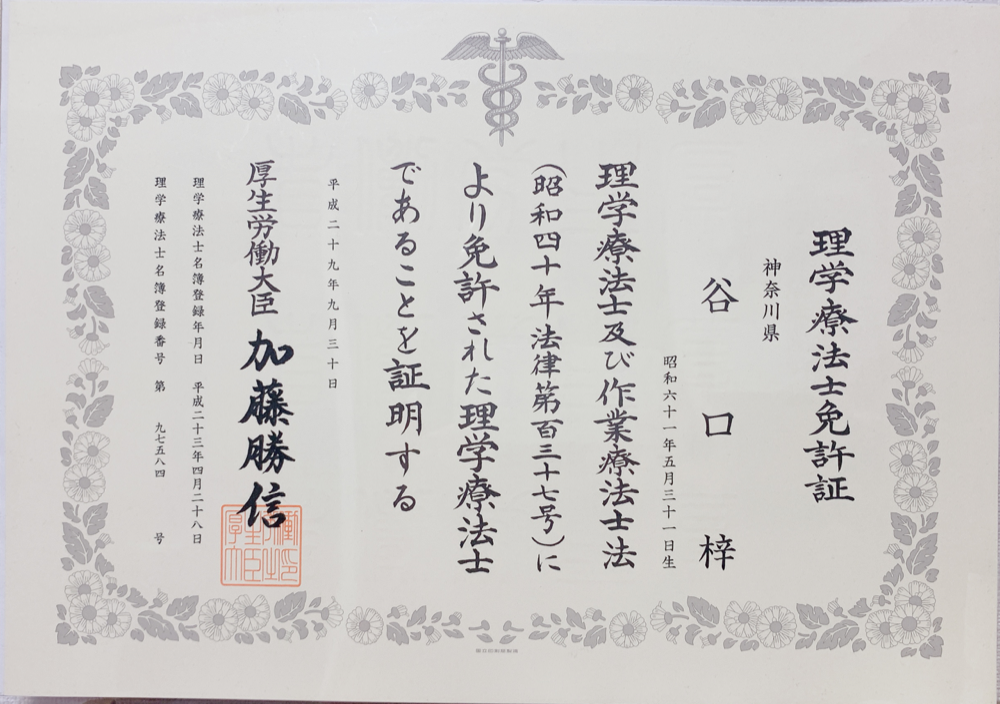 理学療法士免許証
神奈川県
谷口梓
昭和六十一年五月三十一日生
理学療法士及び作業療法士法
(昭和四十年法律第百三十七号)に
より免許された理学療法士
であることを証明する
平成二十九年九月三十日
厚生労働大臣 加藤勝信
理学療法士名簿登録年月日 平成二十三年四月二十八日
理学療法士名簿登録番号 第 九七五八四 号